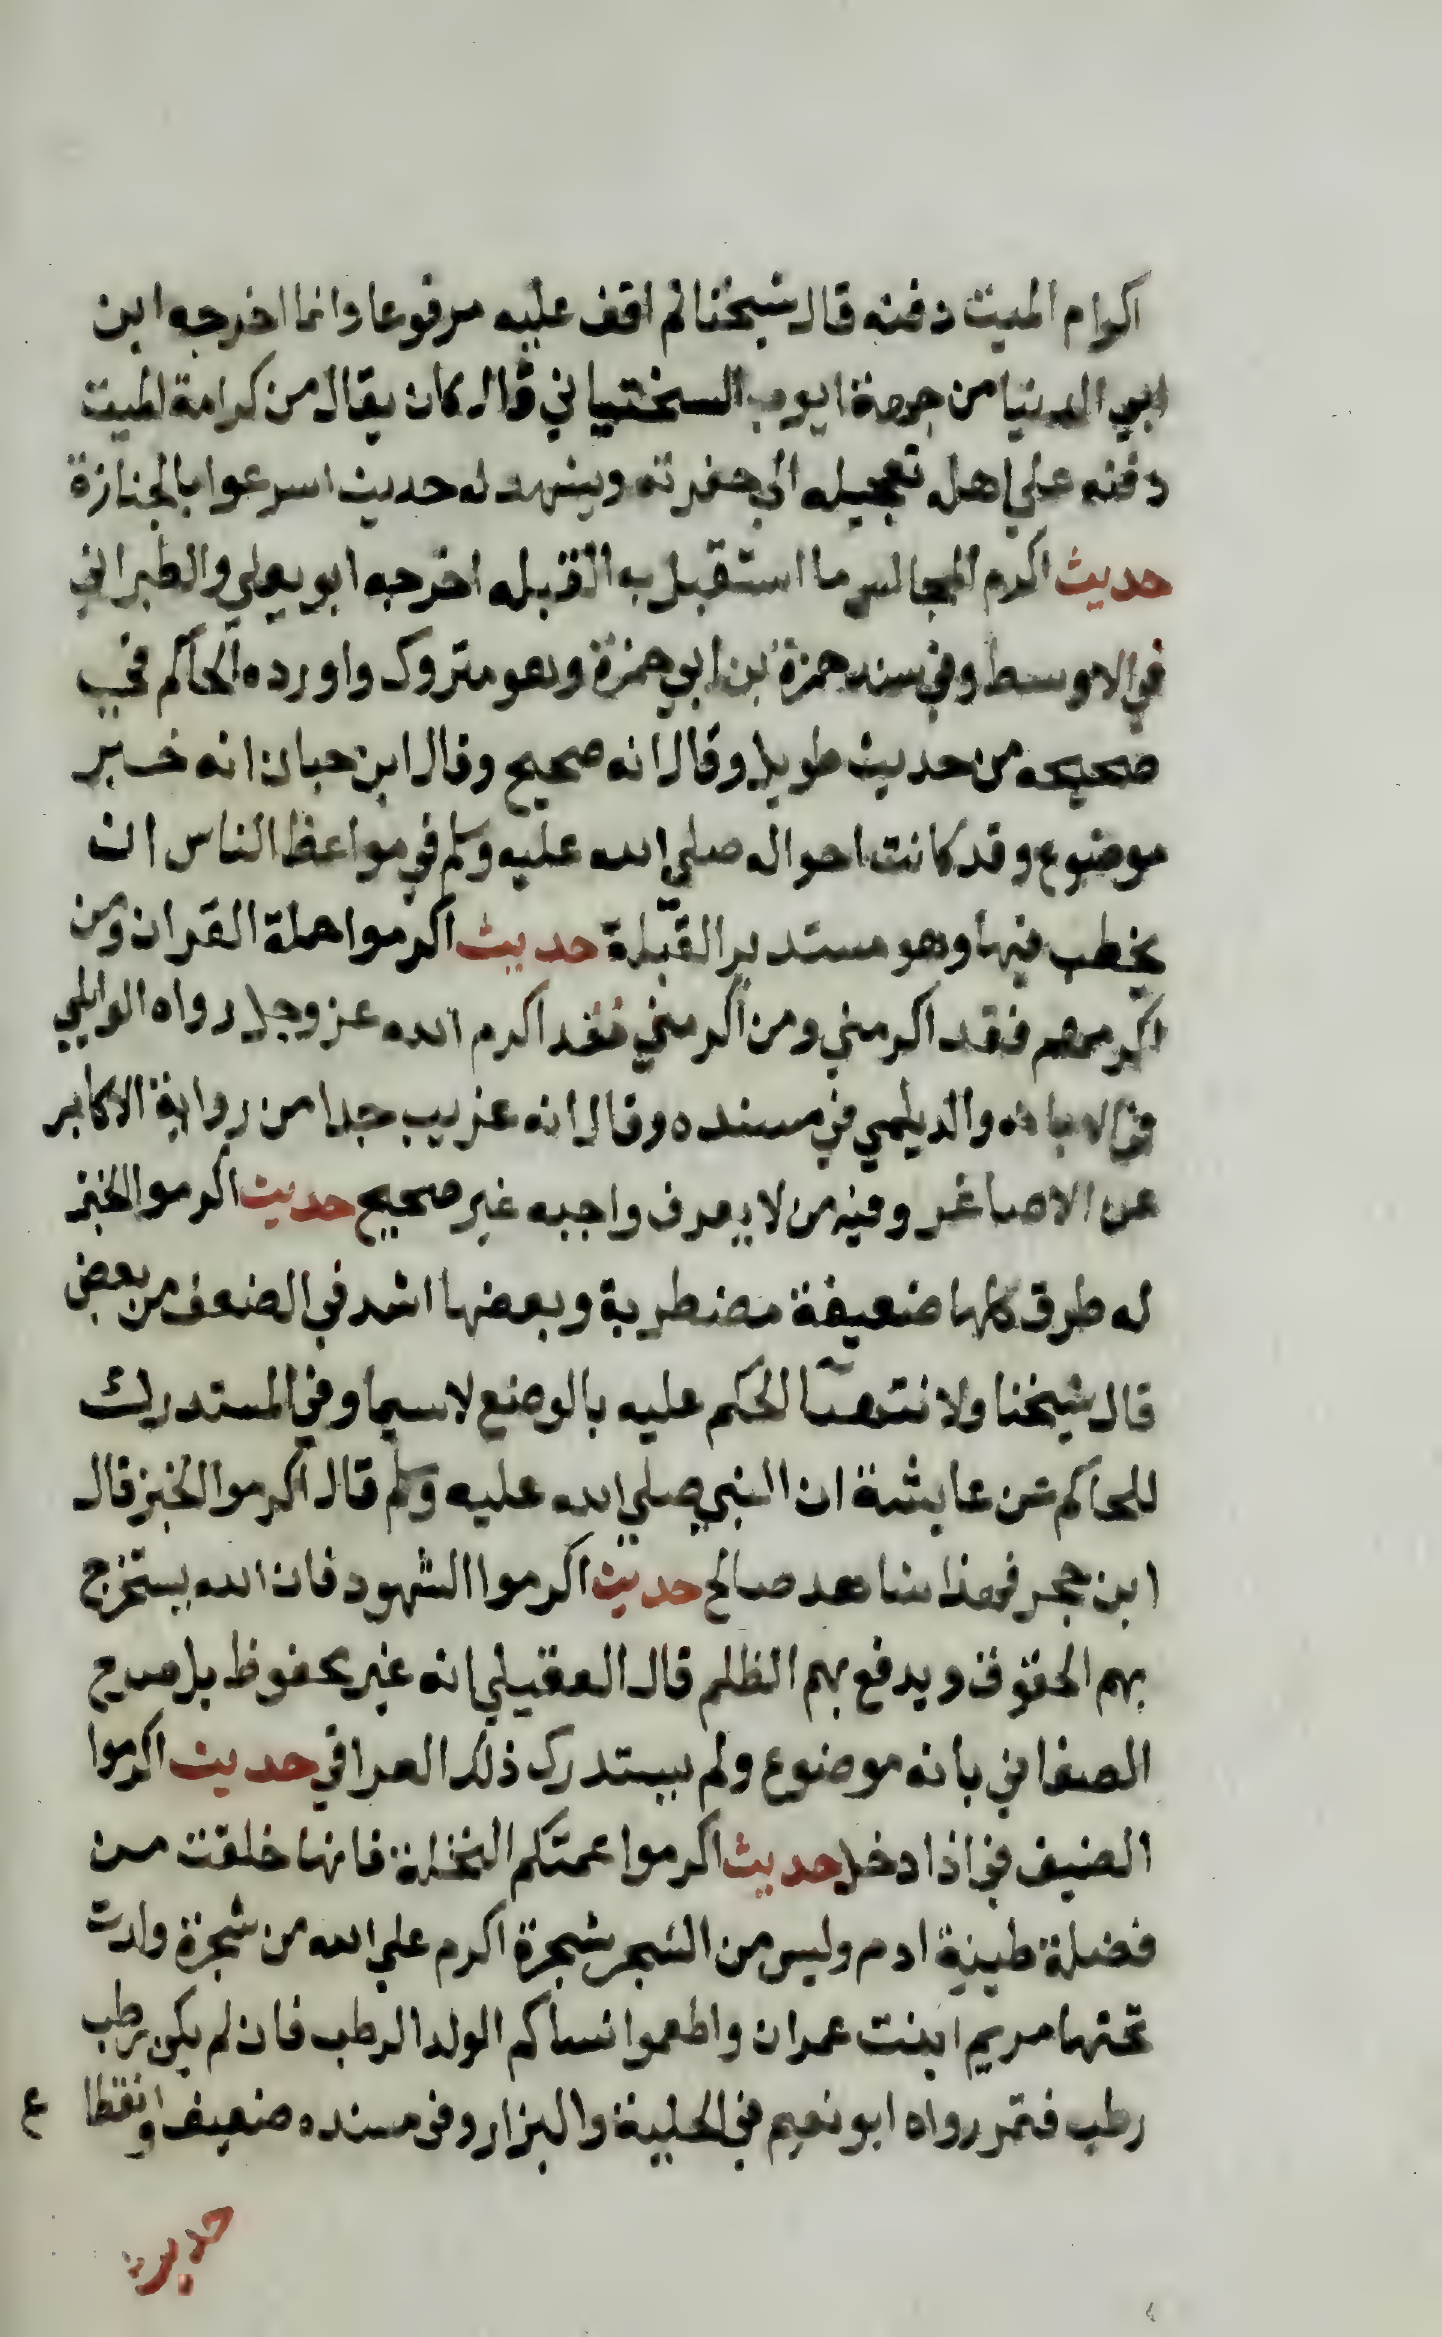 اكرام الميت دفنه قال شيخنا لم اقف عليه مرفوعا وانما اخرجه ابن
ابي الدنيا من جهة ايوب السختياني قال كان يقال من كرامة الميت
دفنه علي اهله تعجيله الي حفرته ويشهد له حديث اسرعوا بالجنازة
حديث اكرم المجالس ما استقبل به القبله اخرجه ابو يعلي والطبراني
في الاوسط وفي سنده حمزة بن ابي حمزة وهو متروك واورده الحاكم في
صحيحه من حديث طويل وقال انه صحيح وقال ابن حبان انه خبر
موضوع وقد كانت احواله صلي الله عليه وسلم في مواعظ الناس ان
يخطب فيها وهو مستدبر القبلة حديث اكرموا حملة القران ومن
اكرمهم فقد اكرمني ومن اكرمني فقد اكرم الله عز وجل رواه الوايلي
في الابانه والديلمي في مسنده وقال انه غريب جدا من رواية الاكابر
عن الاصاغر وفيه من لا يعرف واحبه غير صحيح حديث اكرموا الخبز
له طرق كلها ضعيفة مضطربة وبعضها اشد في الضعف من بعض
قال شيخنا ولا الحكم عليه بالوضع لاسيما وفي المستدرك
للحاكم عن عايشة ان النبي صلي الله عليه وسلم قال اكرموا الخبز قال
ابن حجر فهذا شاهد صالح حديث اكرموا الشهود فان الله يستخرج
بهم الحقوق ويدفع بهم الظلم قال العقيلي انه غير محفوظ بل صرح
الصغاني بانه موضوع ولم يستدرك ذلك العراقي حديث اكرموا
الضيف في اذا دخل حديث اكرموا عمتكم النخلة فانها خلقت من
فضلة طينة ادم وليس من الشجر شجرة اكرم علي الله من شجرة ولدت
تحتها مريم ابنت عمران واطعموا نساكم الولد الرطب فان لم يكن رطب
رطب فتمر رواه ابو نعيم في الحلية والبزار وفي مسنده ضعيف وانقطا ع
حديث